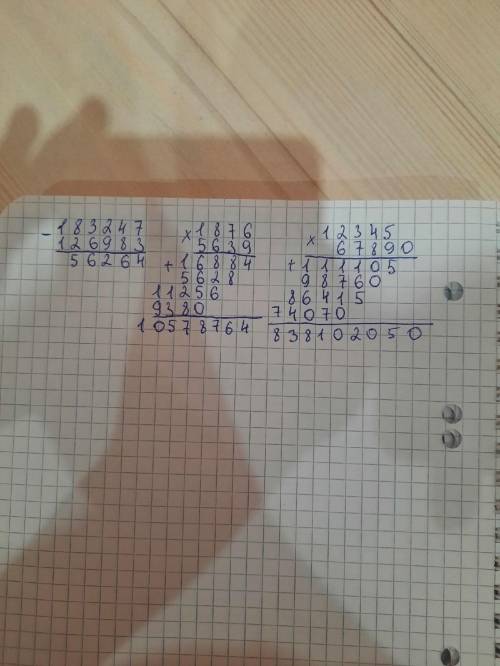 - 183247
126983
56264
x 1876
5639
+ 16884
5628
11256
9380
10578764
x 12345
67890
+ 111105
98760
86415
74070
838102050